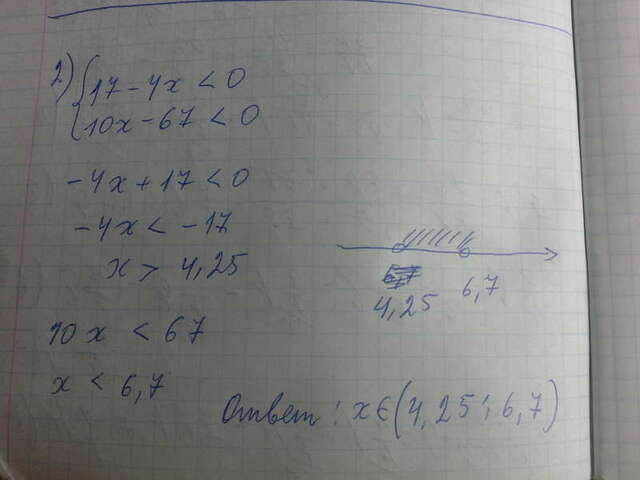 2) { 17 - 4x < 0
10x - 67 < 0
-4x + 17 < 0
-4x < -17
x > 4,25
10x < 67
x < 6,7
4,25 6,7
Ответ: x ∈ (4,25; 6,7)